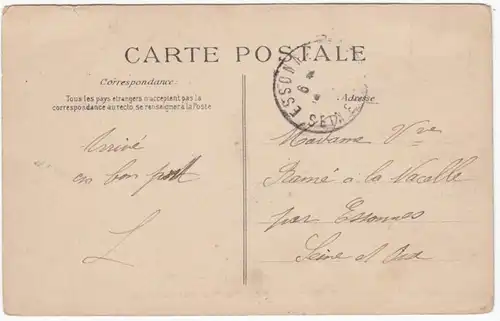 CARTE POSTALE
Correspondance
Tous les pays étrangers n'acceptent pas la
correspondance au recto, se renseigner à la Poste
Adresse
ESSONNES
6
4
SEINE
Arrivé
en bon port
L
Madame Vve
Ramé à la Nacelle
par Essonnes
Seine et Oise